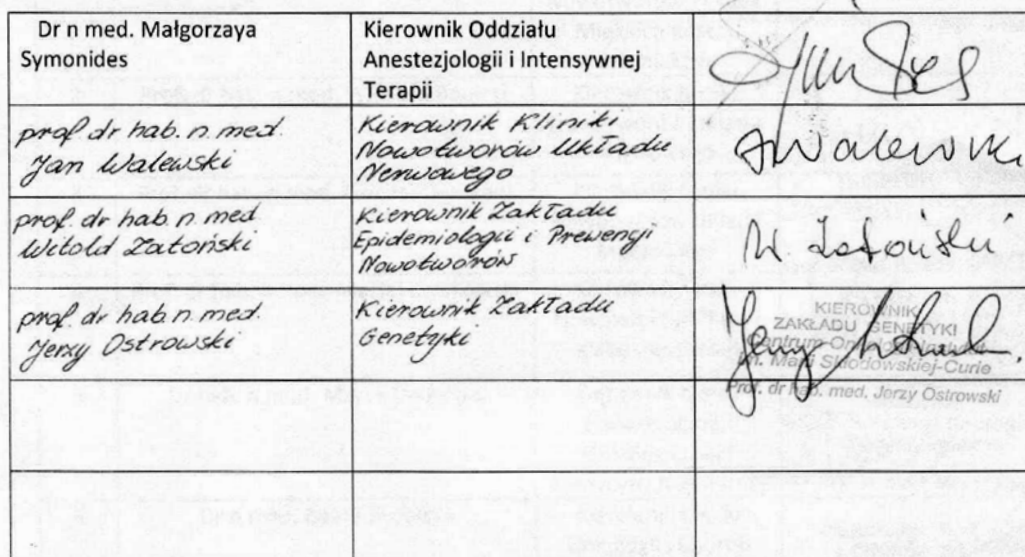 Dr n med. Małgorzaya
Symonides
Kierownik Oddziału
Anestezjologii i Intensywnej
Terapii
prof. dr hab. n. med.
Jan Walewski
Kierownik Kliniki
Nowotworów Układu
Nerwowego
JWalewski
prof. dr hab. n. med
Witold Zatoński
Kierownik Zakładu
Epidemiologii i Prewencji
Nowotworów
W. Zatoński
prof. dr hab. n. med.
Jerzy Ostrowski
Kierownik Zakładu
Genetyki
Jerzy
KIEROWNIK
ZAKŁADU GENETYKI
Centrum Onkologii-Instytut
im. Marii Skłodowskiej-Curie
Prof. dr hab. med. Jerzy Ostrowski